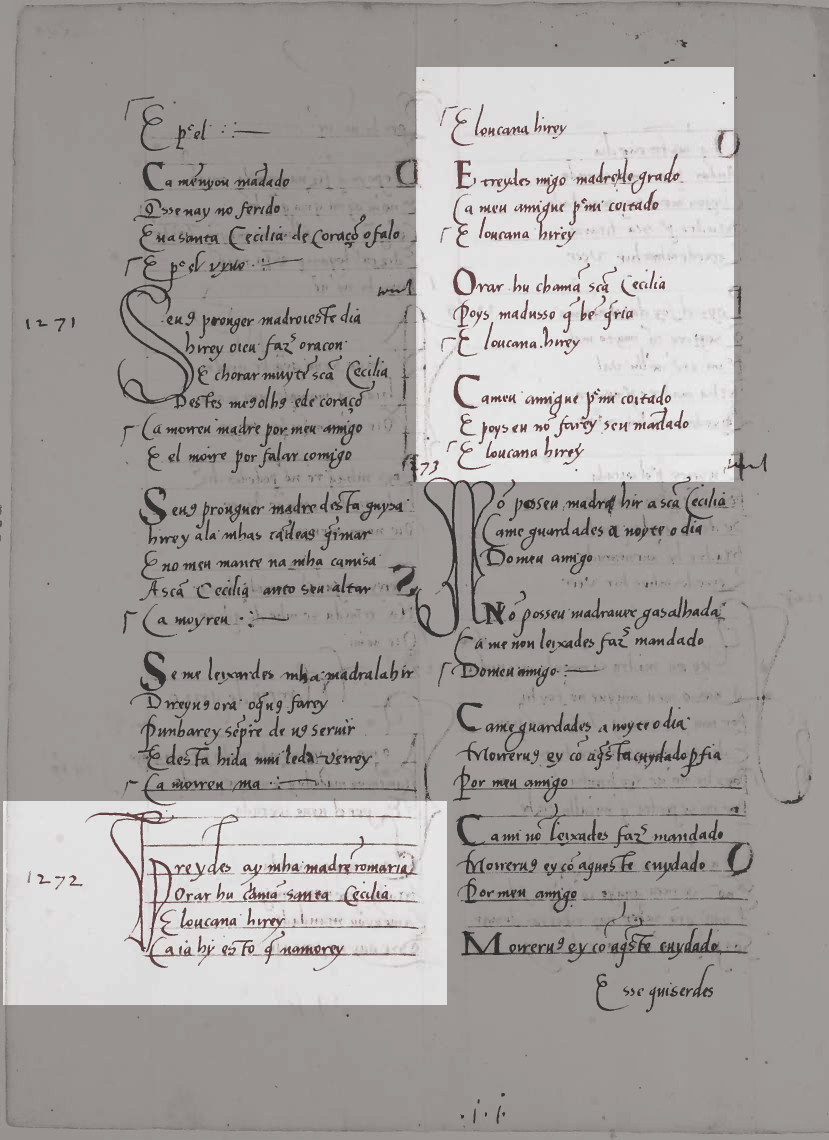 E p̃ el
Ca menyou mãdado
Osse nay no ferido
Eua santa Cecilia de Coraçõ o falo
E p̃ el uyuo
1271
Seu9 prouger madroieste dia
hirey oieu faz̃ oracon
E chorar muytẽ scã Cecilia
Destes me9 olh9 e de coraçõ
Ca moyreu madre por meu amigo
E el moire por falar comigo
Seu9 prouguer madre desta guysa
hirey ala mhas cãdeas q̃imar
E no meu mante na mha camisa
A scã Cecilia anto seu altar
Ca moyreu
Se me leixardes mha madralahir
Direyu9 ora o q̃ u9 farey
Punharey sẽpre de u9 seruir
E desta hida mui leda uerrey
Ca moireu ma
1272
Treydes ay mha madrẽ romaria
Orar hu chamã santa Cecilia
E loucana hirey
Ca ia hy esto q̃ namorey
E loucana hirey
E treydes migo madre de grado
Ca meu amigue p̃ mi coitado
E loucana hirey
Orar hu chamã scã Cecilia
Poys madusso q̃ bẽ q̃ria
E loucana hirey
Ca meu amigue p̃ mi coitado
E poys eu nõ farey seu mãdado
E loucana hirey
1273
Nõ posseu madre hir a scã Cecilia
Ca me guardades a noyte o dia
Do meu amigo
Nõ posseu madrauer gasalhada
Ca me non leixades faz̃ mandado
Do meu amigo
Ca me guardades a noyte o dia
Moireru9 ey cõ aq̃sta cuydado p̃fia
Por meu amigo
Ca mi nõ leixades faz̃ mandado
Moireru9 ey cõ aqueste cuydado
Por meu amigo
Moireru9 ey cõ aq̃ste cuydado
E sse quiserdes